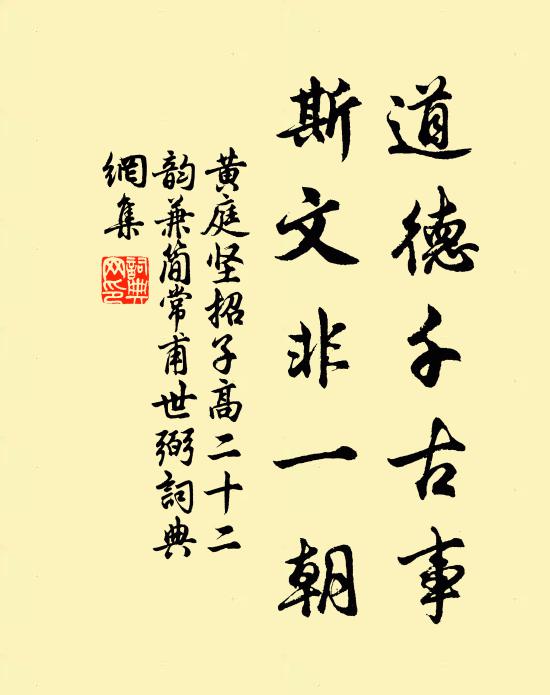 道德千古事
斯文非一朝
黄庭坚招子高二十二
韵兼简常甫世弼詞典
網集
詞典網印